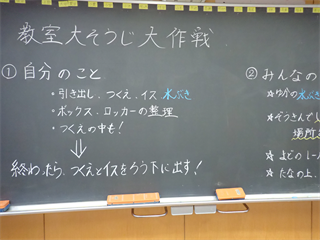 教室大そうじ大作戦
① 自分のこと
・引き出し、つくえ、イス 水ぶき
・ボックス、ロッカーの整理
・つくえの中も!
⇓
終わったら、つくえとイスをろう下に出す!
② みんなの
☆ゆかの水ぶき
☆ぞうきんで
場所
☆まどの
☆たなの上、